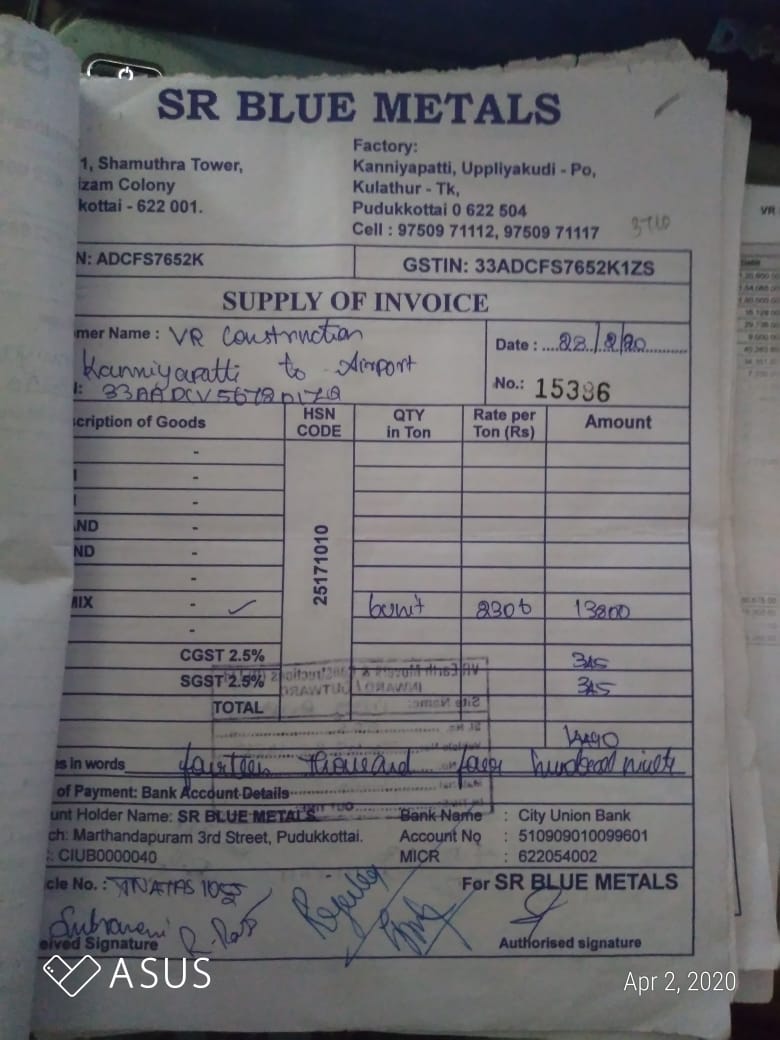 SR BLUE METALS
1, Shamuthra Tower,
izam Colony
kottai - 622 001.
Factory:
Kanniyapatti, Uppliyakudi - Po,
Kulathur - Tk,
Pudukkottai 0 622 504
Cell : 97509 71112, 97509 71117
N: ADCFS7652K
GSTIN: 33ADCFS7652K1ZS
SUPPLY OF INVOICE
mer Name : VR Construction
Kanniyapatti to Airport
Date :
No.: 15386
cription of Goods HSN CODE QTY in Ton Rate per Ton (Rs) Amount
-
I -
I -
AND -
ND -
-
25171010
MIX - 6unit 2300 13800
-
CGST 2.5% 345
SGST 2.5% 345
TOTAL
14490
es in words fourteen thousand four hundred ninety
of Payment: Bank Account Details
unt Holder Name: SR BLUE METALS Bank Name : City Union Bank
ch: Marthandapuram 3rd Street, Pudukkottai. Account No : 510909010099601
: CIUB0000040 MICR : 622054002
cle No. :
For SR BLUE METALS
eived Signature
Authorised signature
VR Earth Movers & Constructions
INWARD / OUTWARD
Site Name:
ASUS
Apr 2, 2020
VR